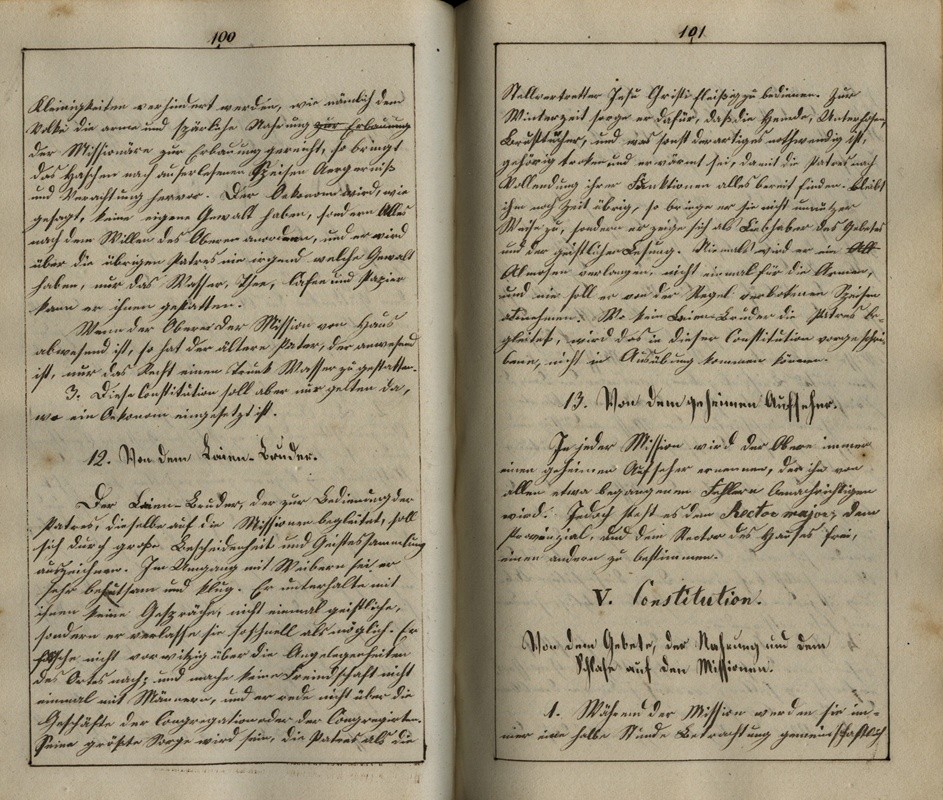 100
Kleinigkeiten verhindert werden, wie nämlich dem
Volke die arme und spärliche Nahrung zur Erbauung
der Missionäre zur Erbauung gereicht, so bringt
das Haschen nach auserlesenen Speisen Aergerniß
und Verachtung hervor. Der Oekonom wird, wie
gesagt, keine eigene Gewalt haben, sondern Alles
nach dem Willen des Oberen anordnen, und er wird
über die übrigen Patres nie irgend welche Gewalt
haben, nur das Wasser, Thee, Cafee und Papier
kann er ihnen gestatten.
Wenn der Obere der Mission von Haus
abwesend ist, so hat der ältere Pater, der anwesend
ist, nur das Recht einen Trunk Wasser zu gestatten.
3. Diese Constitution soll aber nur gelten da,
wo ein Oekonom eingesetzt ist.
12. Von dem Laien-Bruder.
Der Laien-Bruder, der zur Bedienung der
Patres, dieselbe auf die Missionen begleitet, soll
sich durch große Bescheidenheit und Geistessammlung
auszeichnen. Im Umgang mit Weibern sei er
sehr behutsam und klug. Er unterhalte mit
ihnen keine Gespräche, nicht einmal geistliche,
sondern er verlasse sie so schnell als möglich. Er
forsche nicht vorwitzig über die Angelegenheiten
des Ortes nach, und mache keine Freundschaft nicht
einmal mit Männern, und er rede nicht über die
Geschäfte der Congregation oder der Congregirten.
Seine größte Sorge wird sein, die Patres als die
101
Stellvertretter Jesu Christi fleißig zu bedienen. Zur
Winterzeit sorge er dafür, daß die Hemde, Unterhosen,
Brusttücher, und was sonst derartiges nothwendig ist,
gehörig trocken und erwärmt sei, damit die Patres nach
Vollendung ihrer Funktionen alles bereit finden. Bleibt
ihm noch Zeit übrig, so bringe er sie nicht unnützer
Weise zu, sondern er zeige sich als Liebhaber des Gebetes
und der geistlichen Lesung. Niemals wird er ein Alt
Almosen verlangen, nicht einmal für die Armen,
und nie soll er von der Regel verbotenen Speisen
annehmen. Wo kein Laien-Bruder die Patres be-
gleitet, wird das in dieser Constitution vorgeschrie-
bene, nicht in Ausübung kommen können.
13. Von dem geheimen Aufseher.
In jeder Mission wird der Obere immer
einen geheimen Aufseher ernennen, der ihn von
allen etwa begangenen Fehlern benachrichtigen
wird. Jedoch steht es dem Rector major, dem
Provinzial, und dem Rector des Hauses frei,
einen andern zu bestimmen.
V. Constitution.
Von dem Gebete, der Nahrung und dem
Schlafe auf den Missionen.
1. Während der Mission werden sie im-
mer eine halbe Stunde Betrachtung gemeinschaftlich